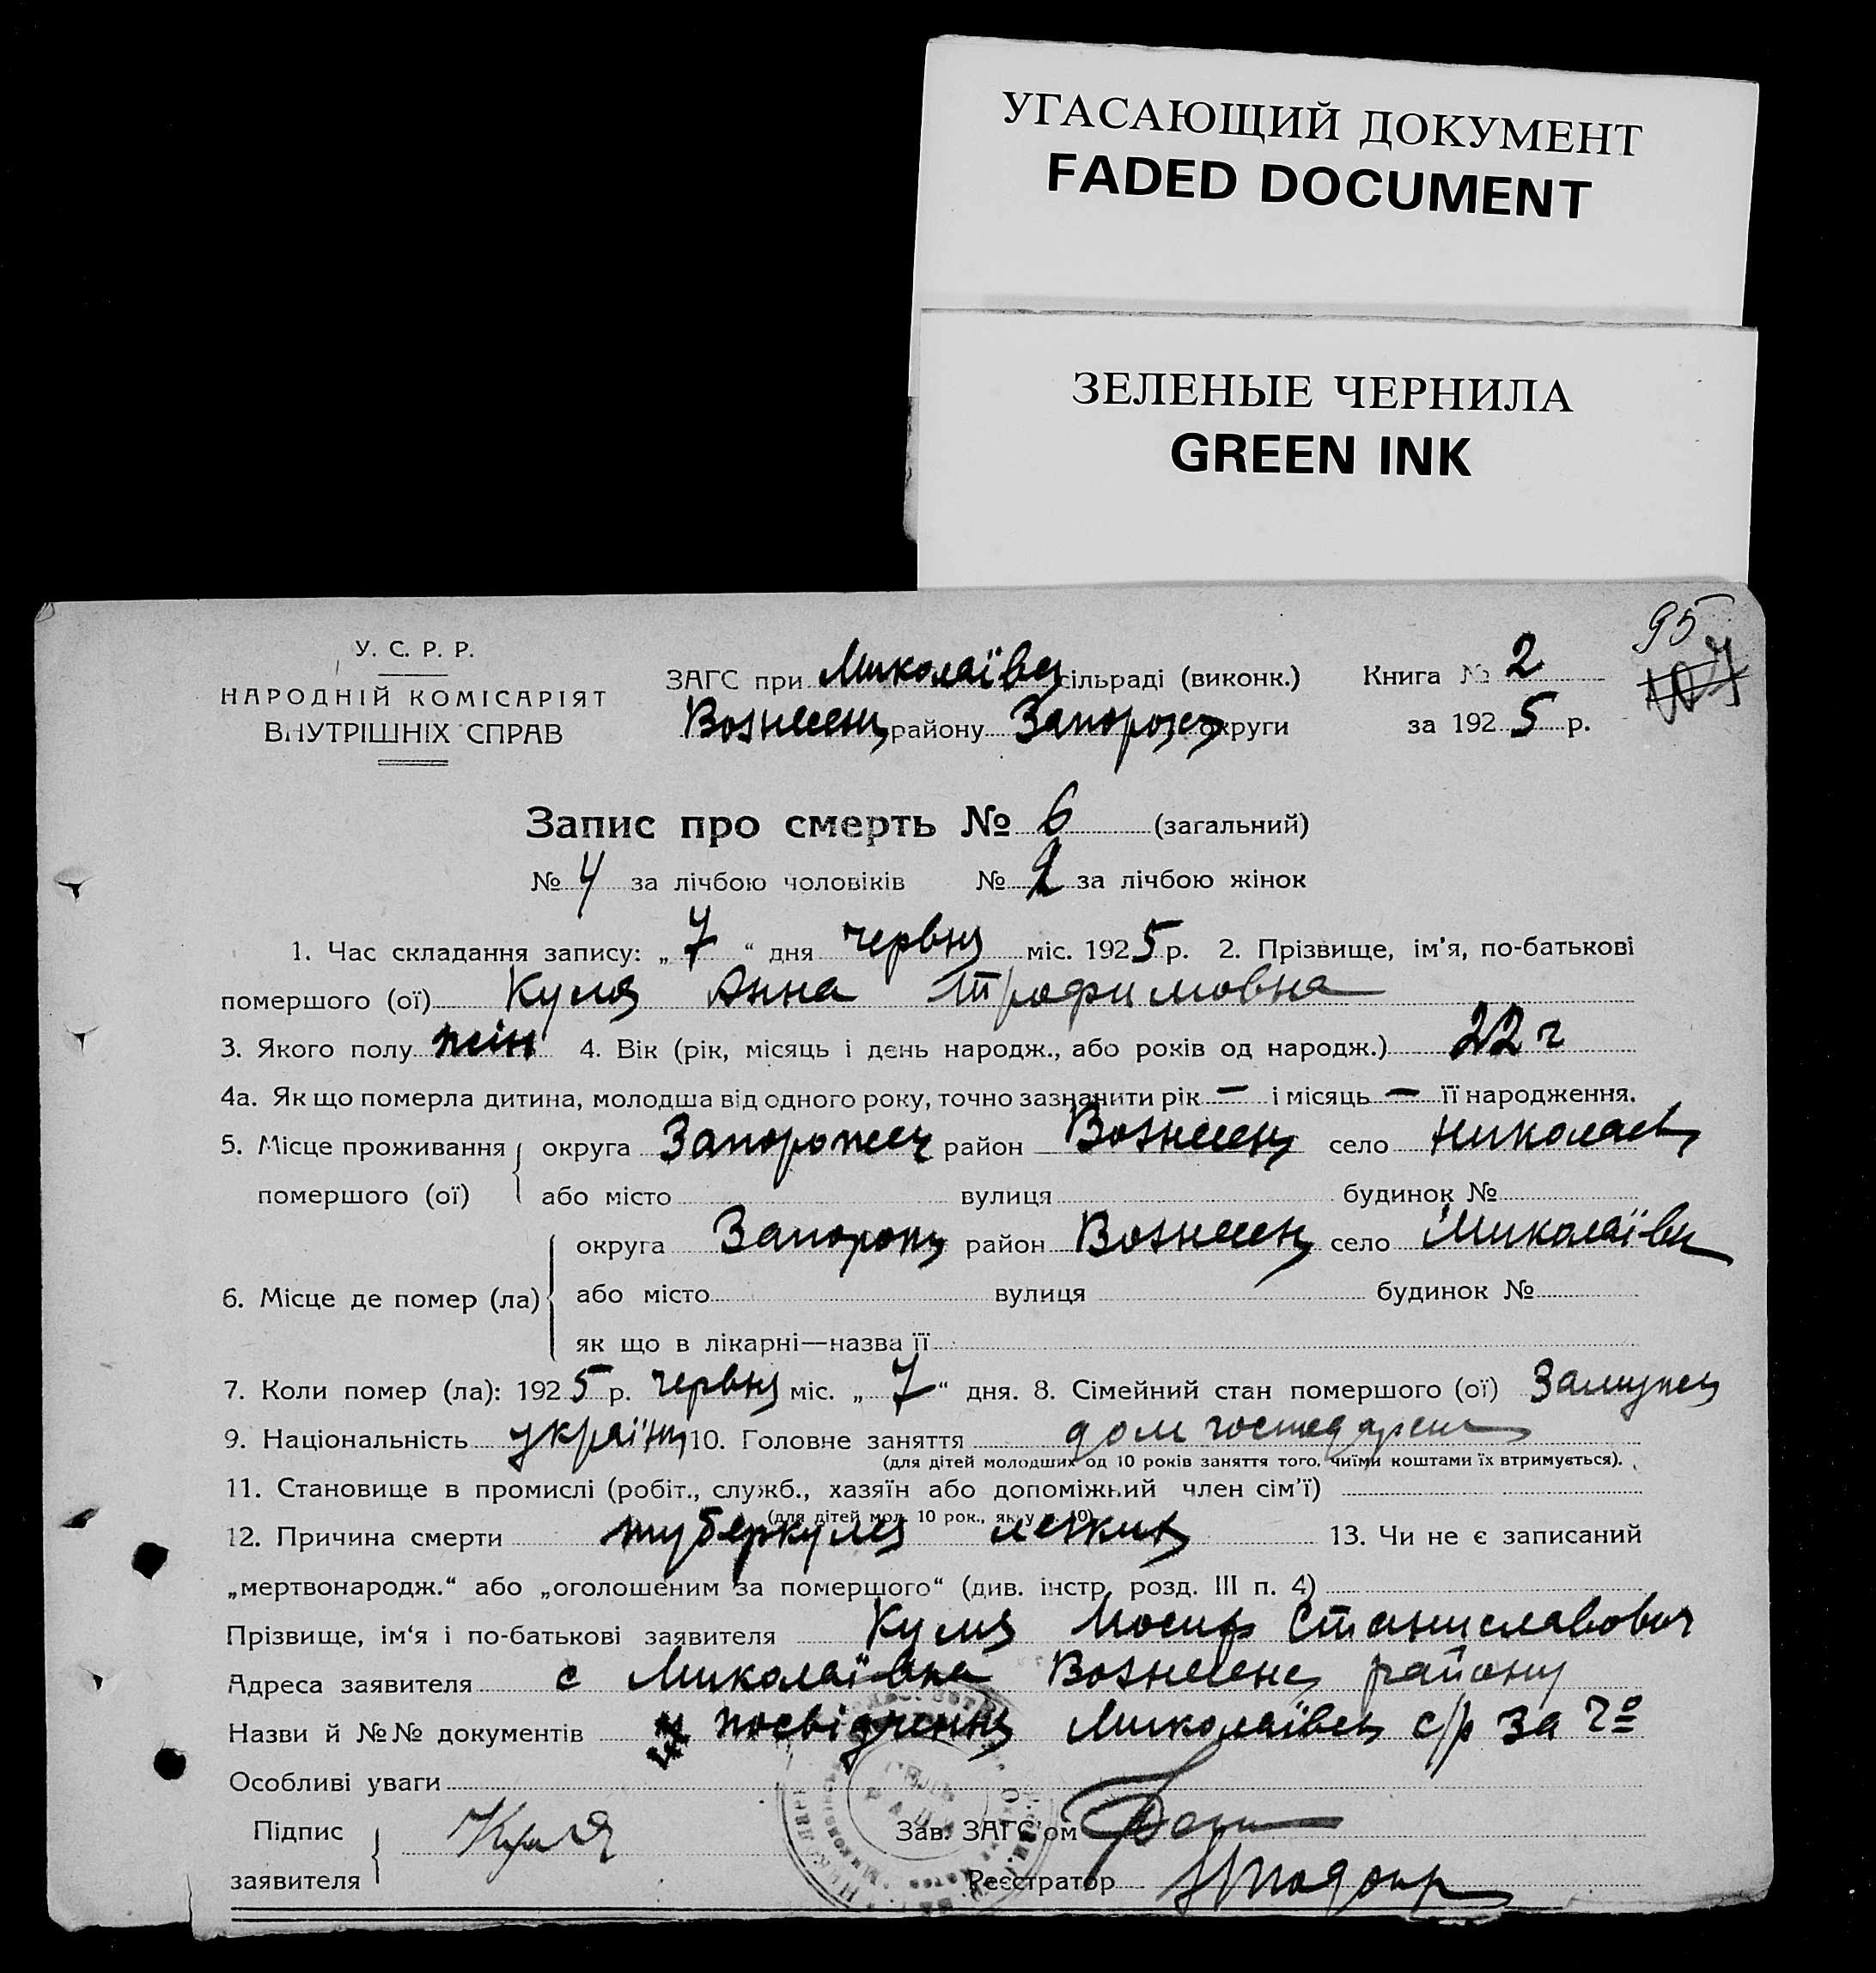 УГАСАЮЩИЙ ДОКУМЕНТ
FADED DOCUMENT
ЗЕЛЕНЫЕ ЧЕРНИЛА
GREEN INK
95
107
У. С. Р. Р.
НАРОДНІЙ КОМІСАРІЯТ
ВНУТРІШНІХ СПРАВ
ЗАГС при Миколаївск сільраді (виконк.) Книга № 2
Вознесенс району Запорозьк округи за 1925 р.
Запис про смерть № 6 (загальний)
№ 4 за лічбою чоловіків № 2 за лічбою жінок
1. Час складання запису: „7“ дня червня міс. 1925 р. 2. Прізвище, ім'я, по-батькові
помершого (ої) Куля Анна Трофимовна
3. Якого полу жін 4. Вік (рік, місяць і день народж., або років од народж.) 22 г
4а. Як що померла дитина, молодша від одного року, точно зазначити рік — і місяць — її народження.
5. Місце проживання округа Запорожск район Вознесенс село Николаев
помершого (ої) або місто вулиця будинок №
округа Запорож район Вознесенс село Миколаївк
6. Місце де помер (ла) або місто вулиця будинок №
як що в лікарні—назва її
7. Коли помер (ла): 1925 р. червня міс. „7“ дня. 8. Сімейний стан помершого (ої) Замужем
9. Національність україн 10. Головне заняття дом господарств
(для дітей молодших од 10 років заняття того, чиїми коштами їх втримується).
11. Становище в промислі (робіт., служб., хазяїн або допоміжний член сім'ї)
(для дітей мол. 10 рок., як у п. 10)
12. Причина смерти туберкулез легких 13. Чи не є записаний
„мертвонародж.“ або „оголошеним за помершого“ (див. інстр. розд. III п. 4)
Прізвище, ім'я і по-батькові заявителя Куля Иосиф Станиславович
Адреса заявителя с Миколаївка Вознесенс району
Назви й №№ документів посвідчення Миколаївск с/р за №
Особливі уваги
Підпис заявителя Куля Зав. ЗАГС'ом
Реєстратор